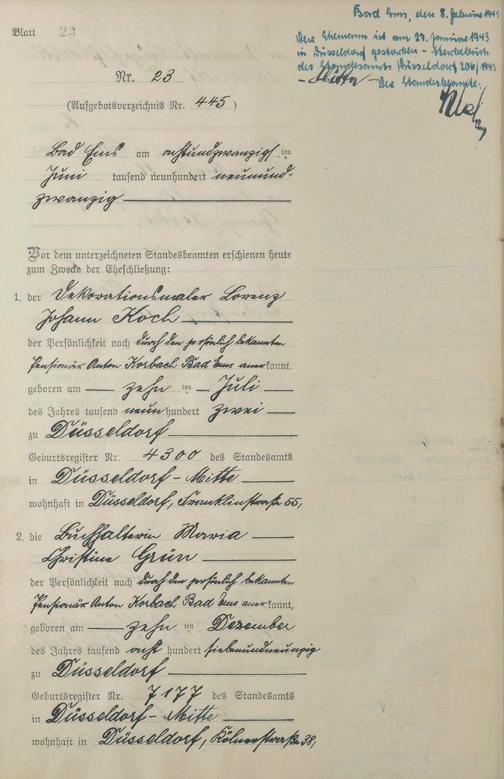 Bad Ems, den 8. Februar 1943
Der Ehemann ist am 27. Januar 1943
in Düsseldorf gestorben – Sterbebuch
des Standesamts Düsseldorf 206/1943
Der Standesbeamte:
Blatt 23
Nr. 23
(Aufgebotsverzeichnis Nr. 445)
Bad Ems am achtundzwanzigsten
Juni tausend neunhundert neunund-
zwanzig
Vor dem unterzeichneten Standesbeamten erschienen heute
zum Zwecke der Eheschließung:
1. der Dekorationsmaler Lorenz
Johann Koch
der Persönlichkeit nach durch den persönlich bekannten
Pensionär Anton Korbach Bad Ems anerkannt,
geboren am zehn ten Juli
des Jahres tausend neun hundert zwei
zu Düsseldorf
Geburtsregister Nr. 4300 des Standesamts
in Düsseldorf-Mitte
wohnhaft in Düsseldorf, Franklinstraße 55,
2. die Buchhalterin Maria
Christine Grün
der Persönlichkeit nach durch den persönlich bekannten
Pensionär Anton Korbach Bad Ems anerkannt,
geboren am zehn ten Dezember
des Jahres tausend acht hundert siebenundneunzig
zu Düsseldorf
Geburtsregister Nr. 7177 des Standesamts
in Düsseldorf-Mitte
wohnhaft in Düsseldorf, Kölnerstraße 38,